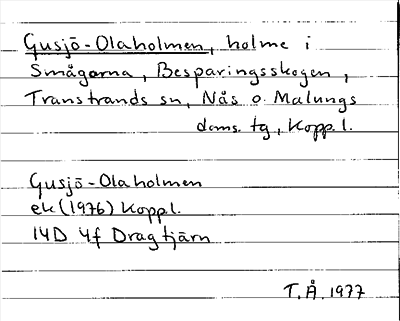 Gusjö-Olaholmen, holme i
Smågarna, Besparingsskogen,
Transtrands sn, Nås o. Malungs
doms. tg, Kopp. l.
Gusjö-Olaholmen
ek (1976) Koppl.
14D 4f Dragtjärn
T.Å. 1977